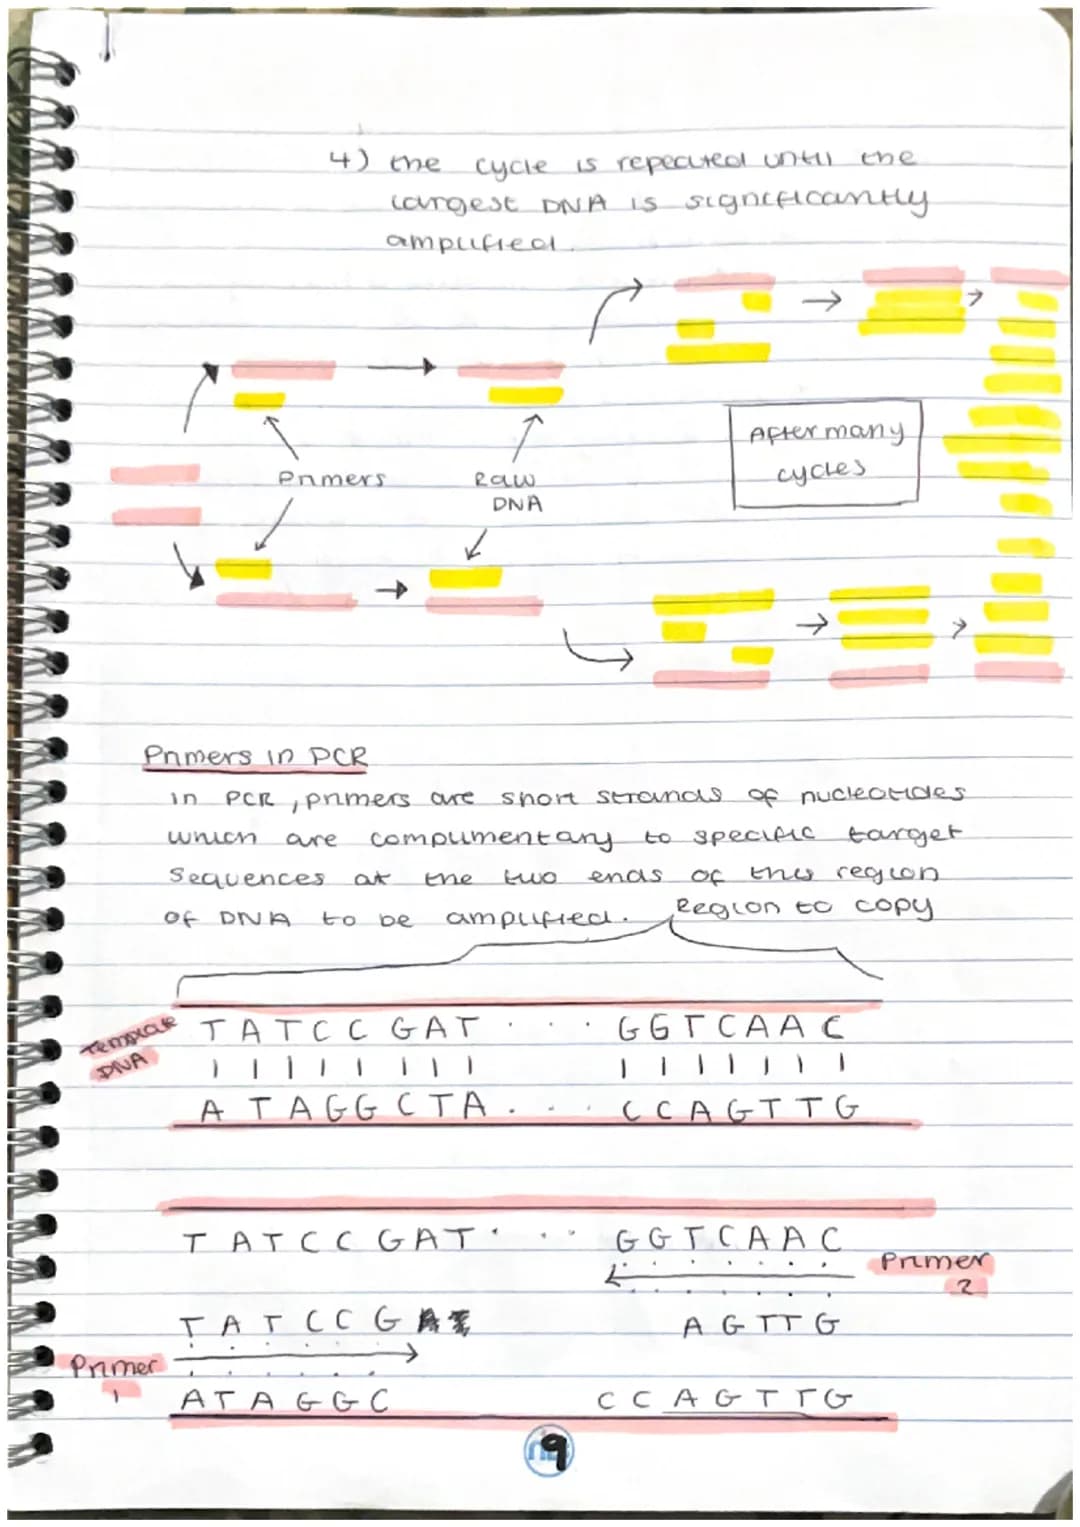 4) the cycle is repeated until the
largest DNA is significantly
amplified.
Primers
Raw
DNA
After many
cycles
Primers in PCR
in PCR, primers are short strands of nucleotides
which are complimentary to specific target
sequences at the two ends of the region
of DNA to be amplified.
Region to copy
Template
DNA
T A T C C G A T . . . G G T C A A C
A T A G G C T A . . . C C A G T T G
T A T C C G A T . . . G G T C A A C
Primer
2
T A T C C G
A G T T G
Primer
1
A T A G G C
C C A G T T G
9